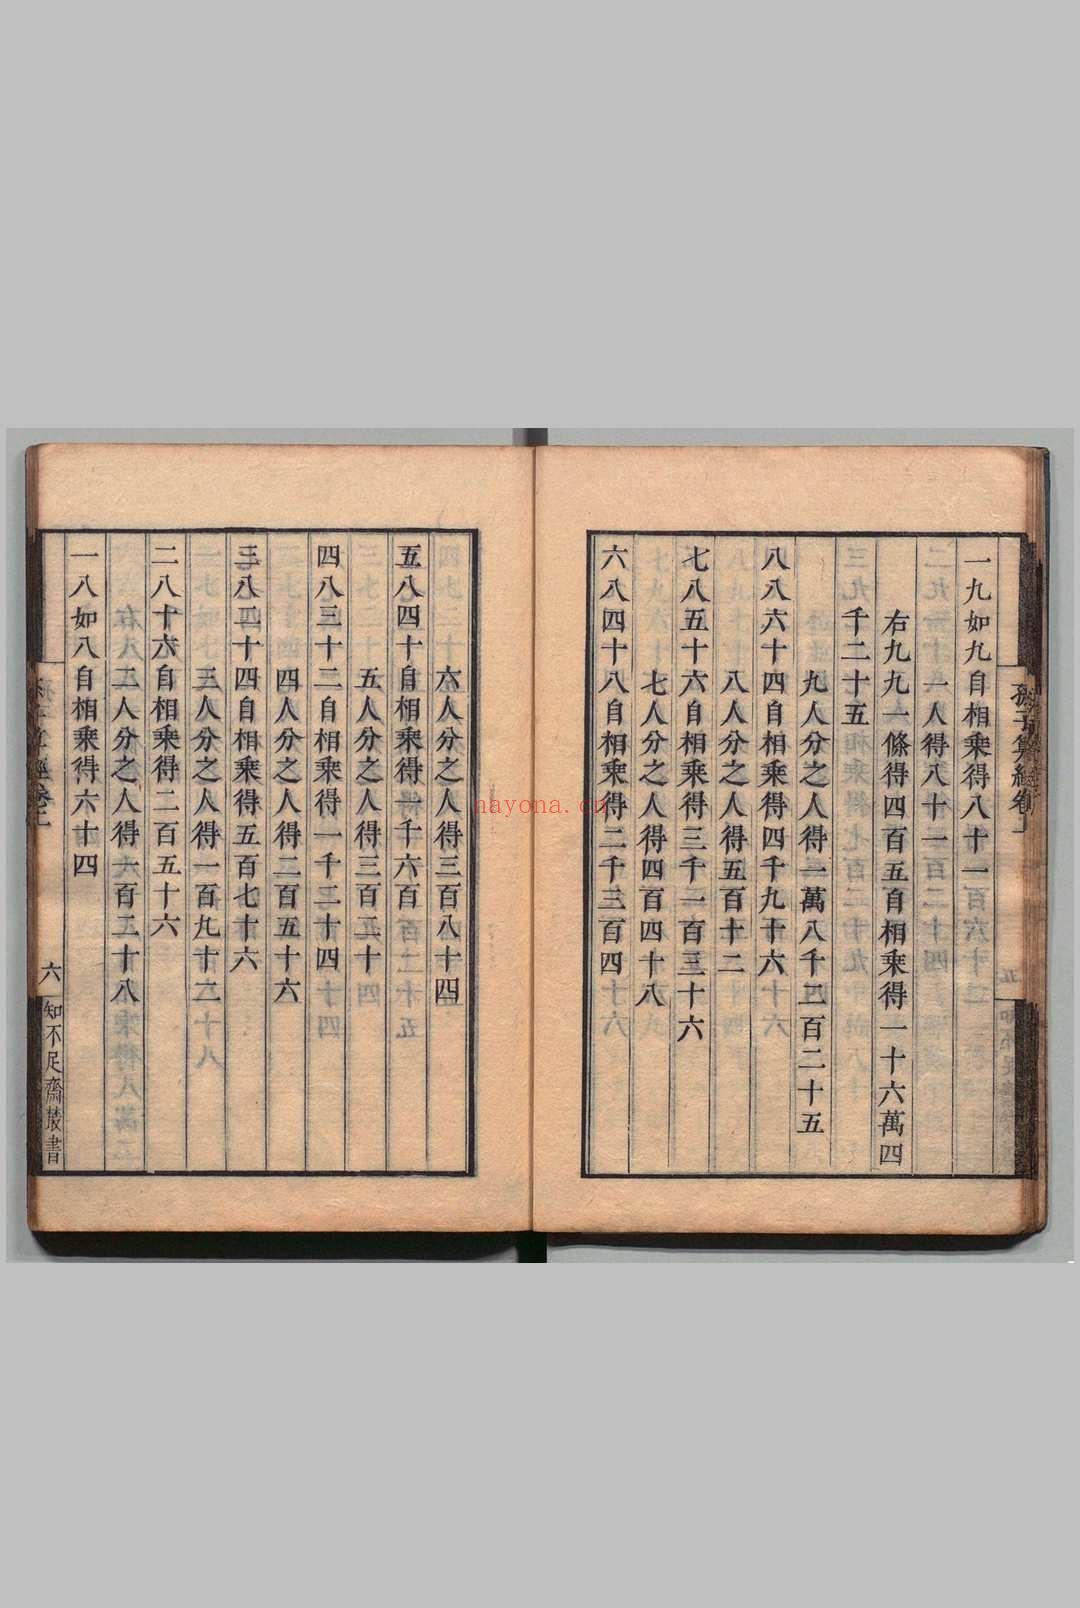 孫子算經卷上
一九如九自相乘得八十一
一人得八十一
右九九一條得四百五自相乘得一十六萬四
千二十五
九人分之人得一萬八千二百二十五
八八六十四自相乘得四千九十六
八人分之人得五百十二
七八五十六自相乘得三千一百三十六
七人分之人得四百四十八
六八四十八自相乘得二千三百四
六人分之人得三百八十四
五八四十自相乘得一千六百
五人分之人得三百二十
四八三十二自相乘得一千二十四
四人分之人得二百五十六
三八二十四自相乘得五百七十六
三人分之人得一百九十二
二八十六自相乘得二百五十六
二人分之人得一百二十八
一八如八自相乘得六十四
六
知不足齋叢書
nayona.cn